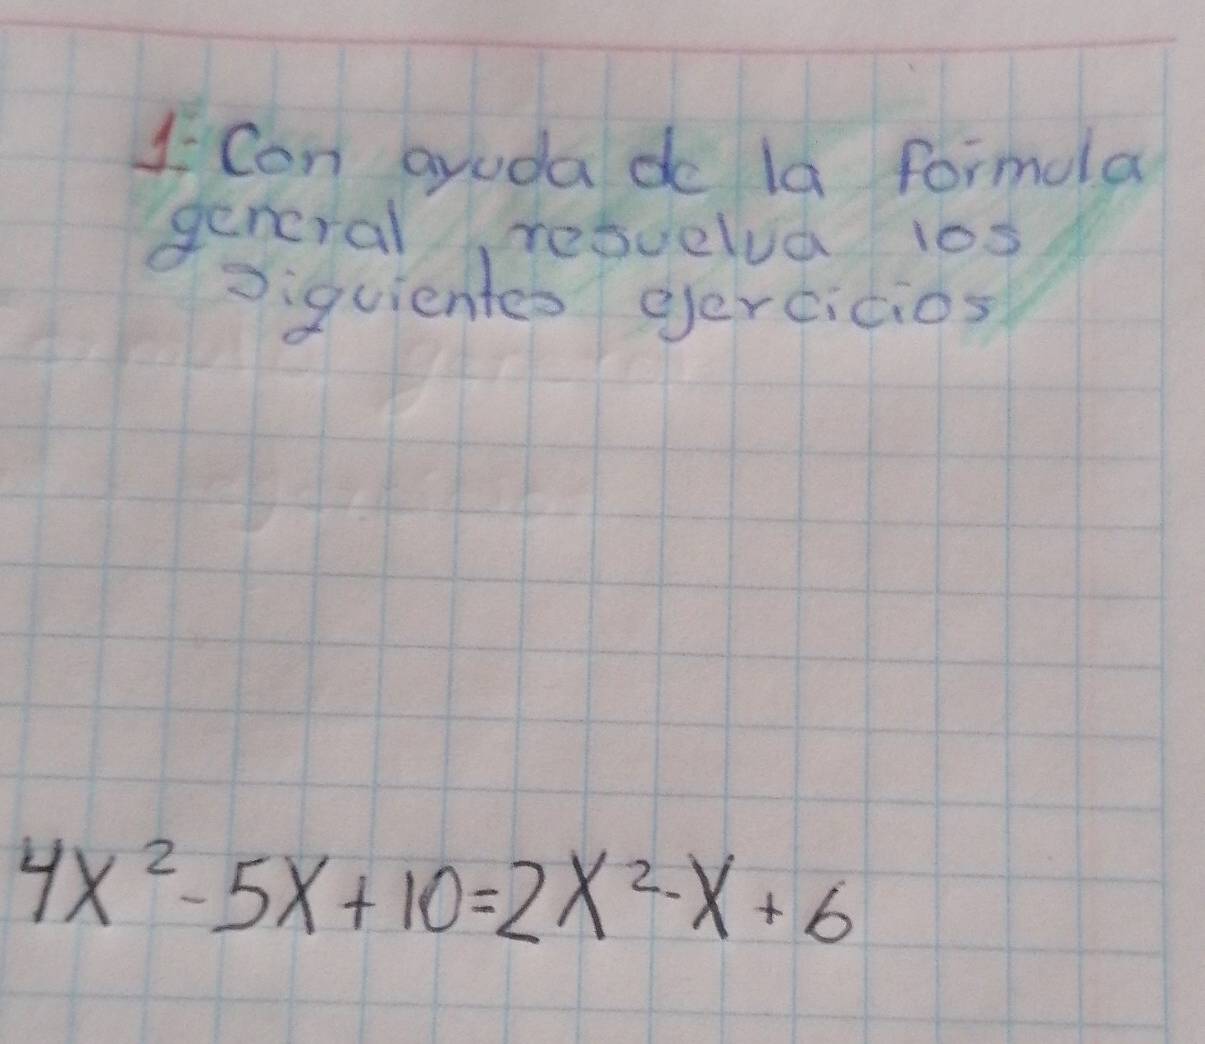 1- Con ayuda de la formula
general, resuelva los
siguientes ejercicios
4X² - 5X + 10 = 2X² - X + 6